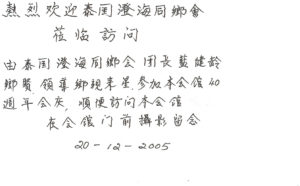 熱烈欢迎泰囯澄海同鄉會
莅临訪问
由泰囯澄海同鄉会团长藍健龄
鄉賢領導鄉親来星参加本会馆40
週年会庆，順便訪问本会馆
在会馆门前攝影留念
20-12-2005